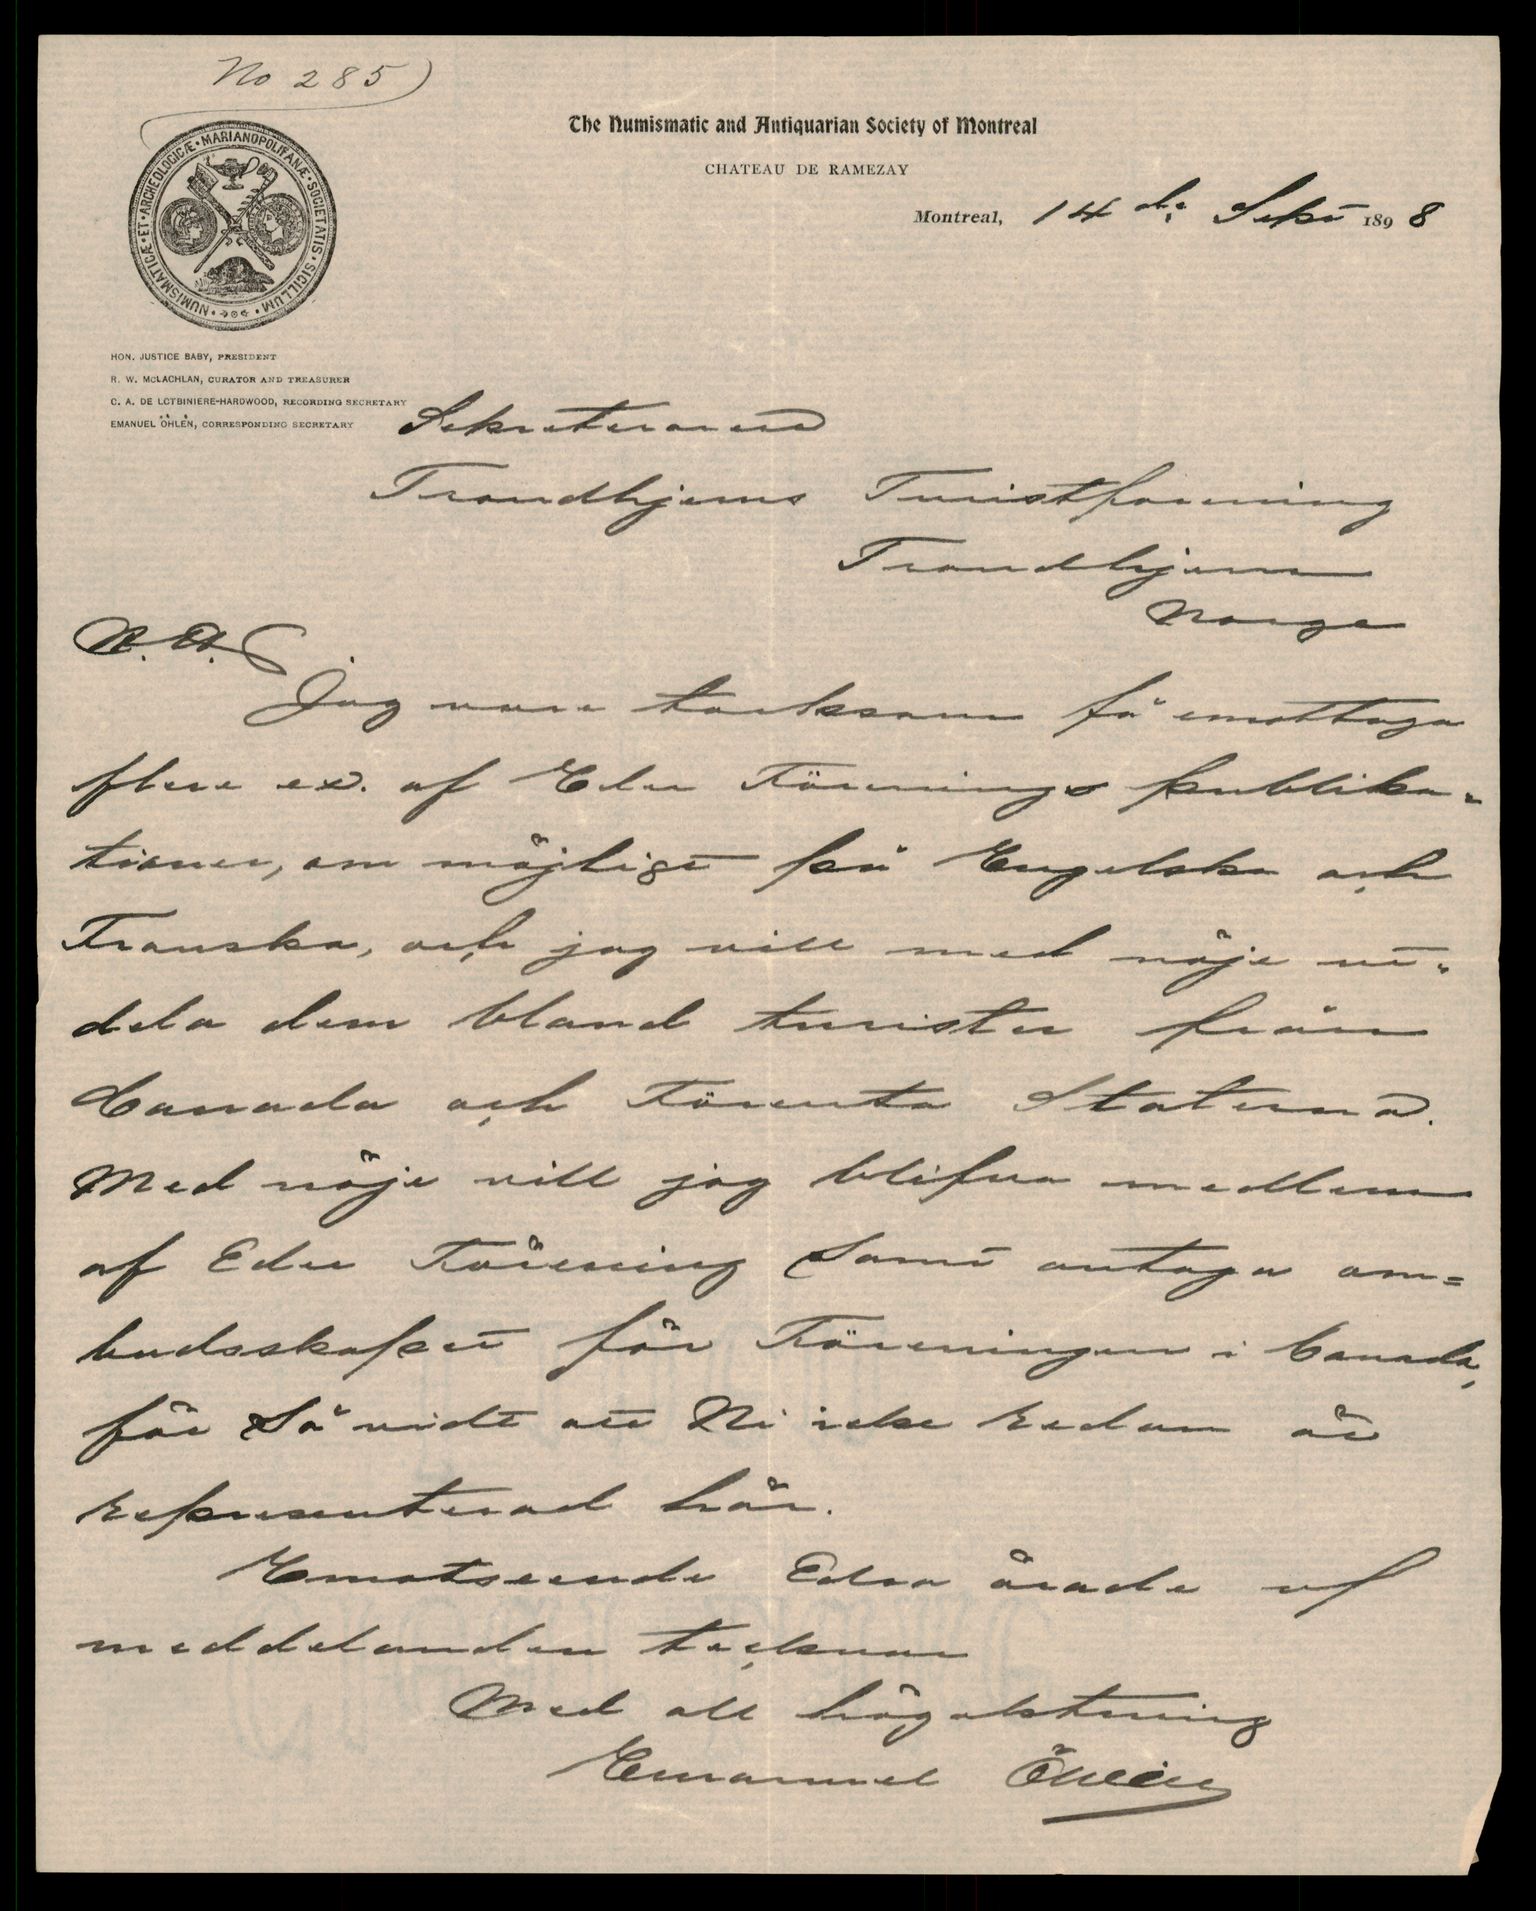 No 285)
The Numismatic and Antiquarian Society of Montreal
CHATEAU DE RAMEZAY
Montreal, 14de Sept 1898
NUMISMATICÆ · ET · ARCHEOLOGICÆ · MARIANOPOLITANÆ · SOCIETATIS · SICILLUM
HON. JUSTICE BABY, PRESIDENT
R. W. McLACHLAN, CURATOR AND TREASURER
C. A. DE LOTBINIERE-HARDWOOD, RECORDING SECRETARY
EMANUEL ÖHLÉN, CORRESPONDING SECRETARY
Sekreteraren
Trondhjems Turistforening
Trondhjem
Norge
Jag vore tacksam få emottaga
flere ex. af Eder Förenings publika-
tioner, om möjligt på Engelska och
Franska, och jag vill med nöje ut-
dela dem bland turister från
Canada och Förenta Staterna.
Med nöje vill jag blifva medlem
af Eder Förening samt antaga om-
budsskapet för Föreningen i Canada,
för så vidt att Ni icke redan är
representerad här.
Emotseende Edra ärade
meddelanden tecknar
Med all högaktning
Emanuel Öhlén